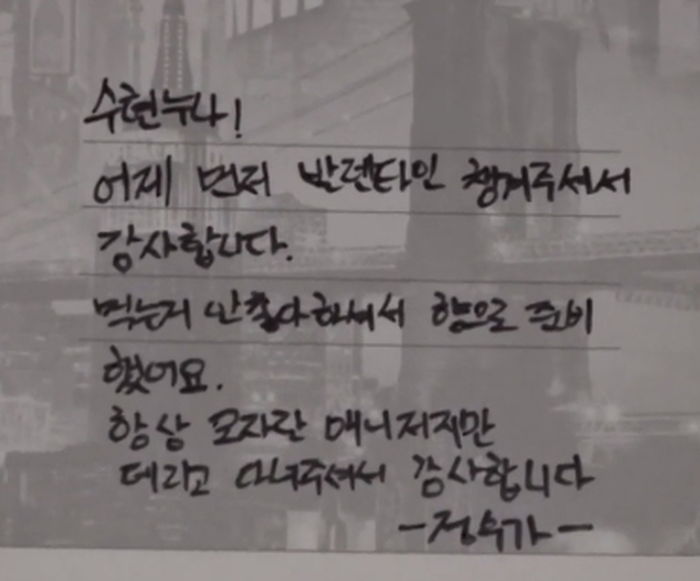 수현누나!
어제 먼저 발렌타인 챙겨주셔서
감사합니다.
먹는거 안좋아하셔서 향으로 준비
했어요.
항상 모자란 매니저지만
데리고 다녀주셔서 감사합니다
-정우가-